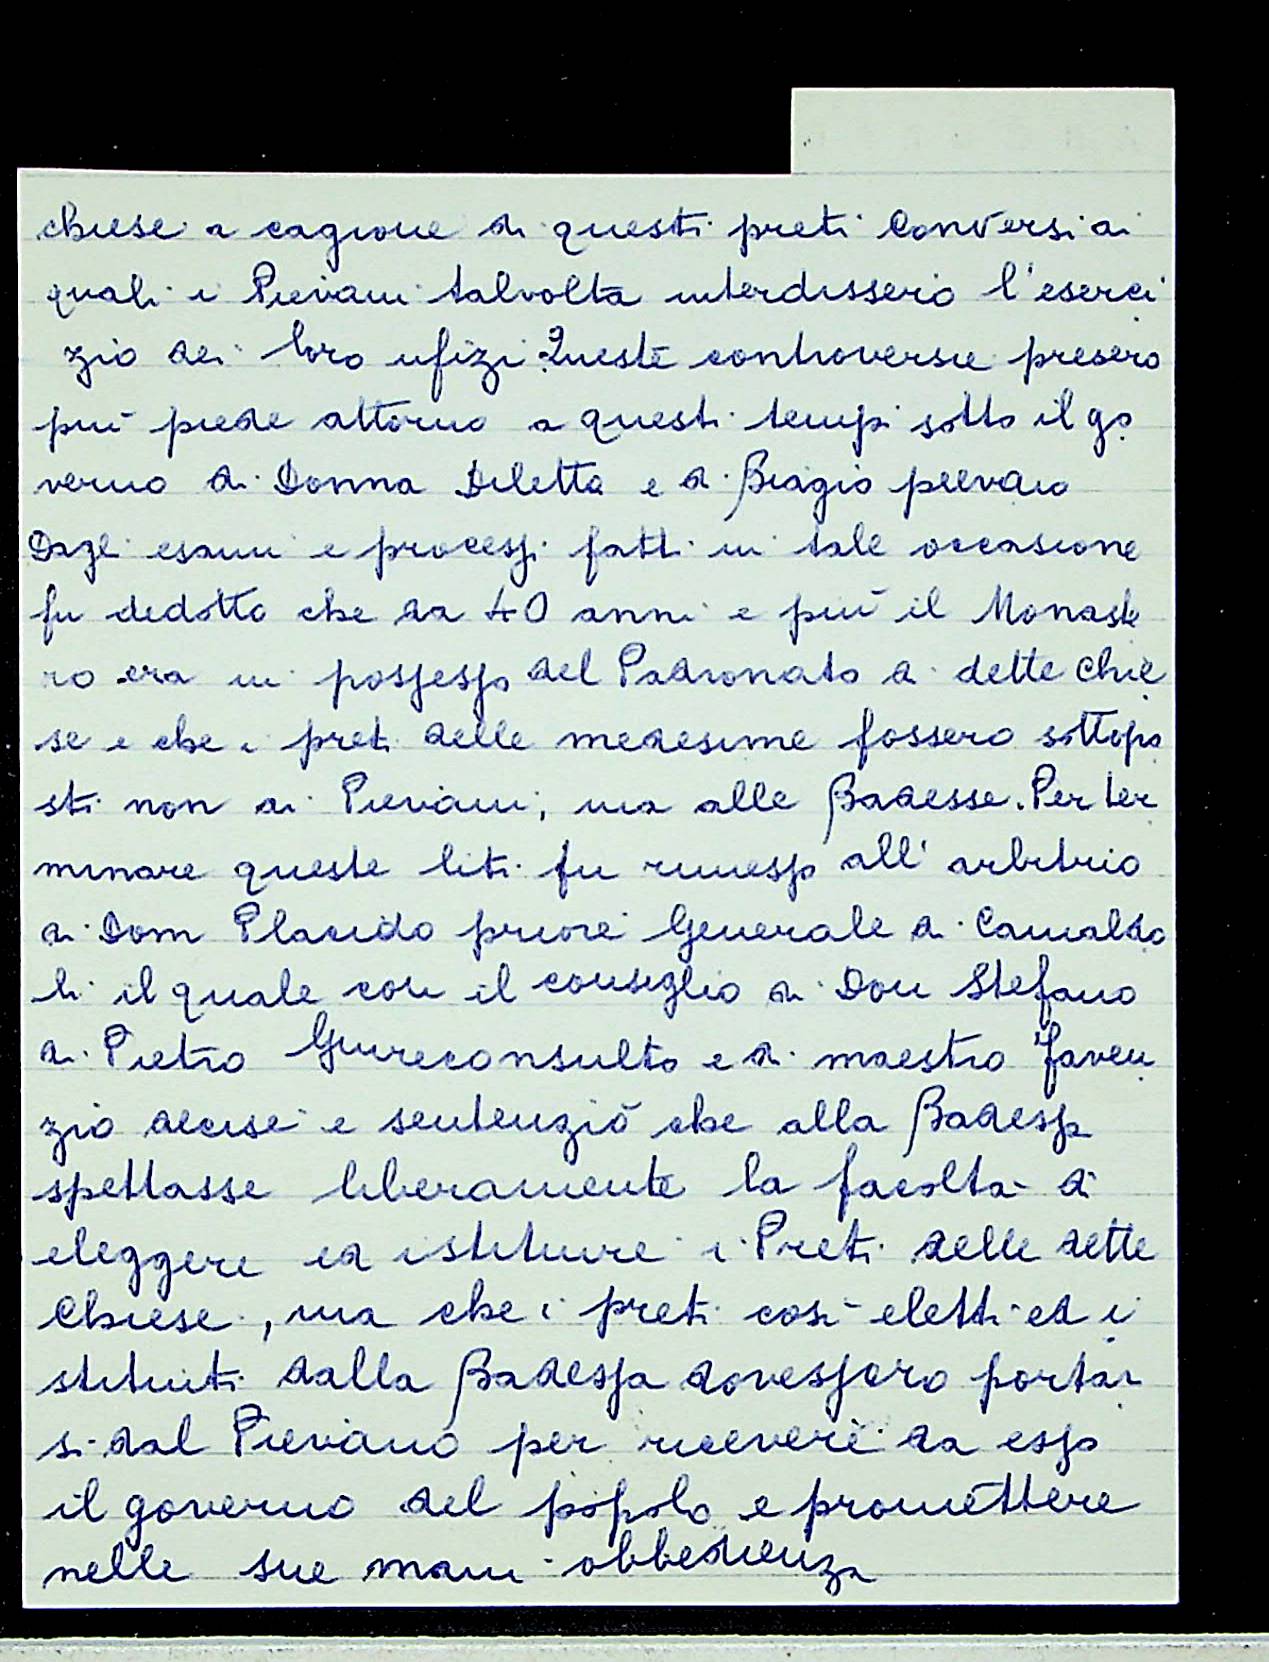 chiese a cagione di questi preti Conversi ai
quali i Pievani talvolta interdissero l'eserci
zio dei loro ufizi. Queste controversie presero
più piede attorno a questi tempi sotto il go
verno di Donna Diletta e di Biagio pievano
Dagli esami e processi fatti in tale occasione
fu dedotto che da 40 anni e più il Monaste
ro era in possesso del Padronato di dette Chie
se e che i preti delle medesime fossero sottopo
sti non ai Pievani, ma alle Badesse. Per ter
minare queste liti fu rimesso all'arbitrio
di Dom Placido priore Generale di Camaldo
li il quale con il consiglio di Don Stefano
di Pietro Giureconsulto e di maestro Faven
zio decise e sentenziò che alla Badessa
spettasse liberamente la facoltà di
eleggere ed istituire i Preti delle dette
Chiese, ma che i preti così eletti ed i
stituiti dalla Badessa dovessero portar
si dal Pievano per ricevere da esso
il governo del popolo e promettere
nelle sue mani obbedienza